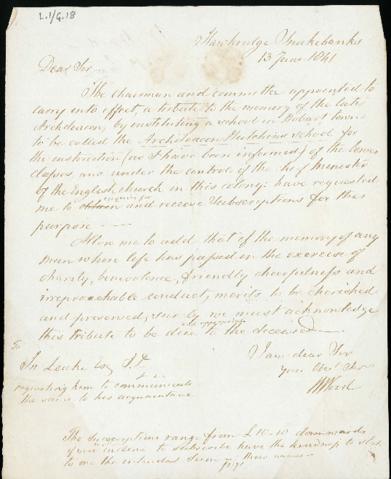 L.1/G.18
Hawkridge Snakebanks
13 June 1841
Dear Sir
The chairman and committee appointed to
carry into effect, a tribute to the memory of the late
Archdeacon, by instituting a school in Hobart Town
to be called the Archdeacon Hutchins school for
the instruction (as I have been informed) of the lower
classes, and under the control of the chief Minister
of the English church in this colony: have requested
me to and receive subscriptions for this
purpose
Allow me to add, that if the memory of any
man whose life has passed in the exercise of
charity, benevolence, friendly cheerfulness and
irreproachable conduct, merits to be cherished
and preserved, surely we must acknowledge
this tribute to be due to the deceased
I am dear Sir
your
To
Jn Leake Esq
requesting him to communicate
the same to his acquaintance
The subscriptions range from £10-10 downwards
if you incline to subscribe have the kindness to
to me the intended sum